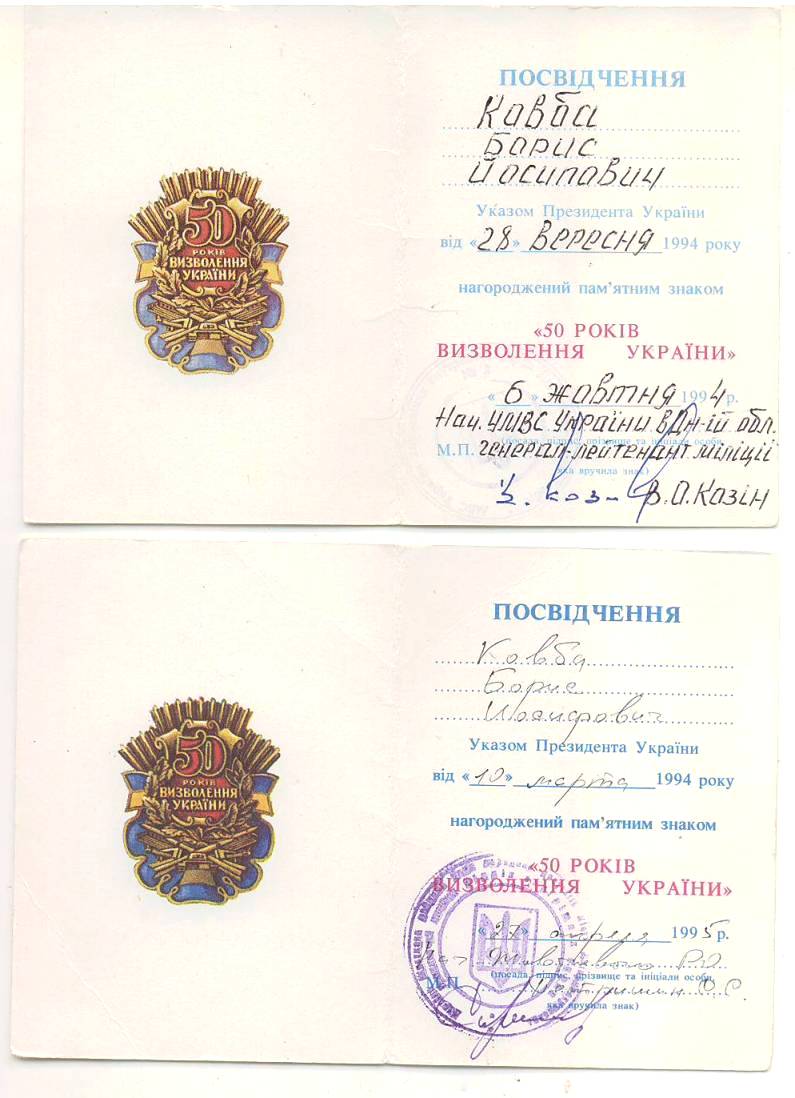 50
РОКІВ
ВИЗВОЛЕННЯ
УКРАЇНИ
ПОСВІДЧЕННЯ
Ковба
Борис
Йосипович
Указом Президента України
від «28» вересня 1994 року
нагороджений пам'ятним знаком
«50 РОКІВ
ВИЗВОЛЕННЯ УКРАЇНИ»
«6» жовтня 1994 р.
Нач. УМВС України в Дн-ій обл.
(посада, підпис, прізвище та ініціали особи,
М.П. генерал-лейтенант міліції
яка вручила знак)
В.О.Козін
50
РОКІВ
ВИЗВОЛЕННЯ
УКРАЇНИ
ПОСВІДЧЕННЯ
Ковба
Борис
Иосифович
Указом Президента України
від «10» марта 1994 року
нагороджений пам'ятним знаком
«50 РОКІВ
ВИЗВОЛЕННЯ УКРАЇНИ»
«27» апреля 1995 р.
(посада, підпис, прізвище та ініціали особи,
М.П.
яка вручила знак)